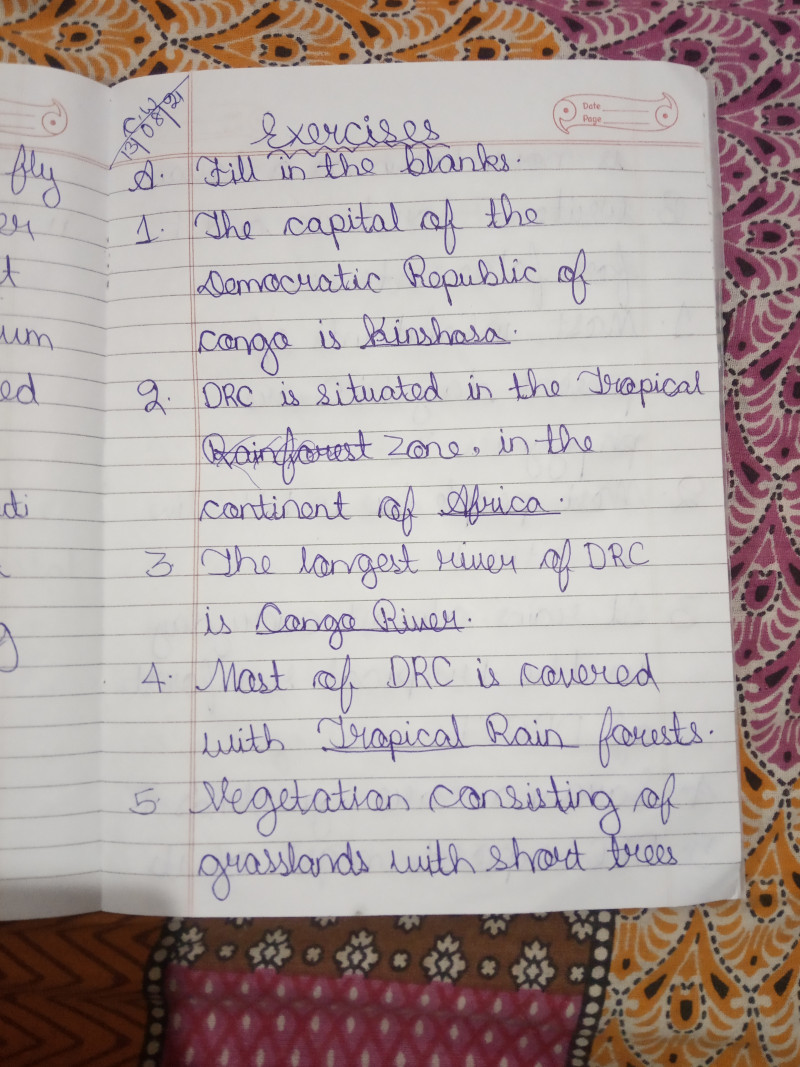 fly
er
t
um
ed
di
g
C.W
13/08/21
Date
Page
Exercises
A. Fill in the blanks.
1. The capital of the
Democratic Republic of
Congo is Kinshasa.
2. DRC is situated in the Tropical
Rainforest Zone, in the
continent of Africa.
3. The longest river of DRC
is Congo River.
4. Most of DRC is covered
with Tropical Rain forests.
5. Vegetation consisting of
grasslands with short trees